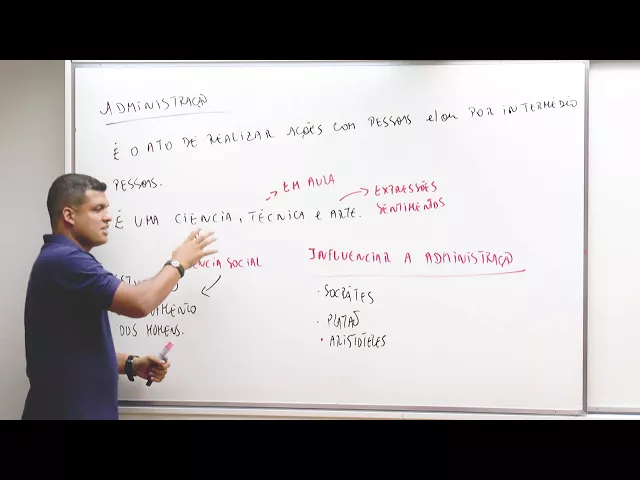 ADMINISTRAÇÃO
É O ATO DE REALIZAR AÇÕES COM PESSOAS e/ou POR INTERMÉDIO
PESSOAS.
EM AULA
É UMA CIÊNCIA, TÉCNICA e ARTE.
EXPRESSÕES
SENTIMENTOS
SOCIAL
DOS HOMENS.
INFLUENCIAR A ADMINISTRAÇÃO
· SÓCRATES
· PLATÃO
· ARISTÓTELES